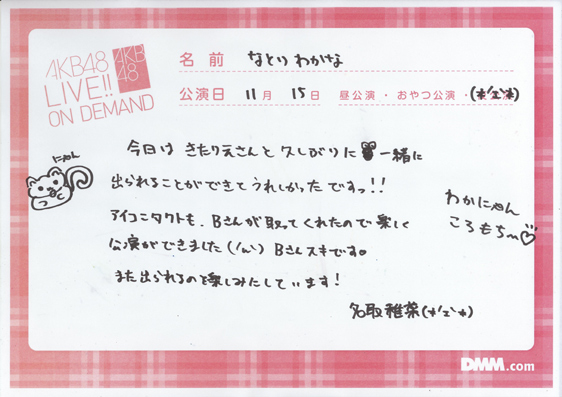 AKB48
LIVE!!
ON DEMAND
AKB
48
名前 なとり わかな
公演日 11月 15日 昼公演・おやつ公演・(*'ェ'*)
今日は きたりえさんと 久しぶりに 一緒に
出られることができてうれしかったですっ!!
アイコンタクトも、Bさんが取ってくれたので楽しく
公演ができました(ノω`) Bさんスキです。
また出られるのを楽しみにしています!
名取稚菜(*'ェ'*)
にゃん
わかにゃん
ころもち〜♡
DMM.com